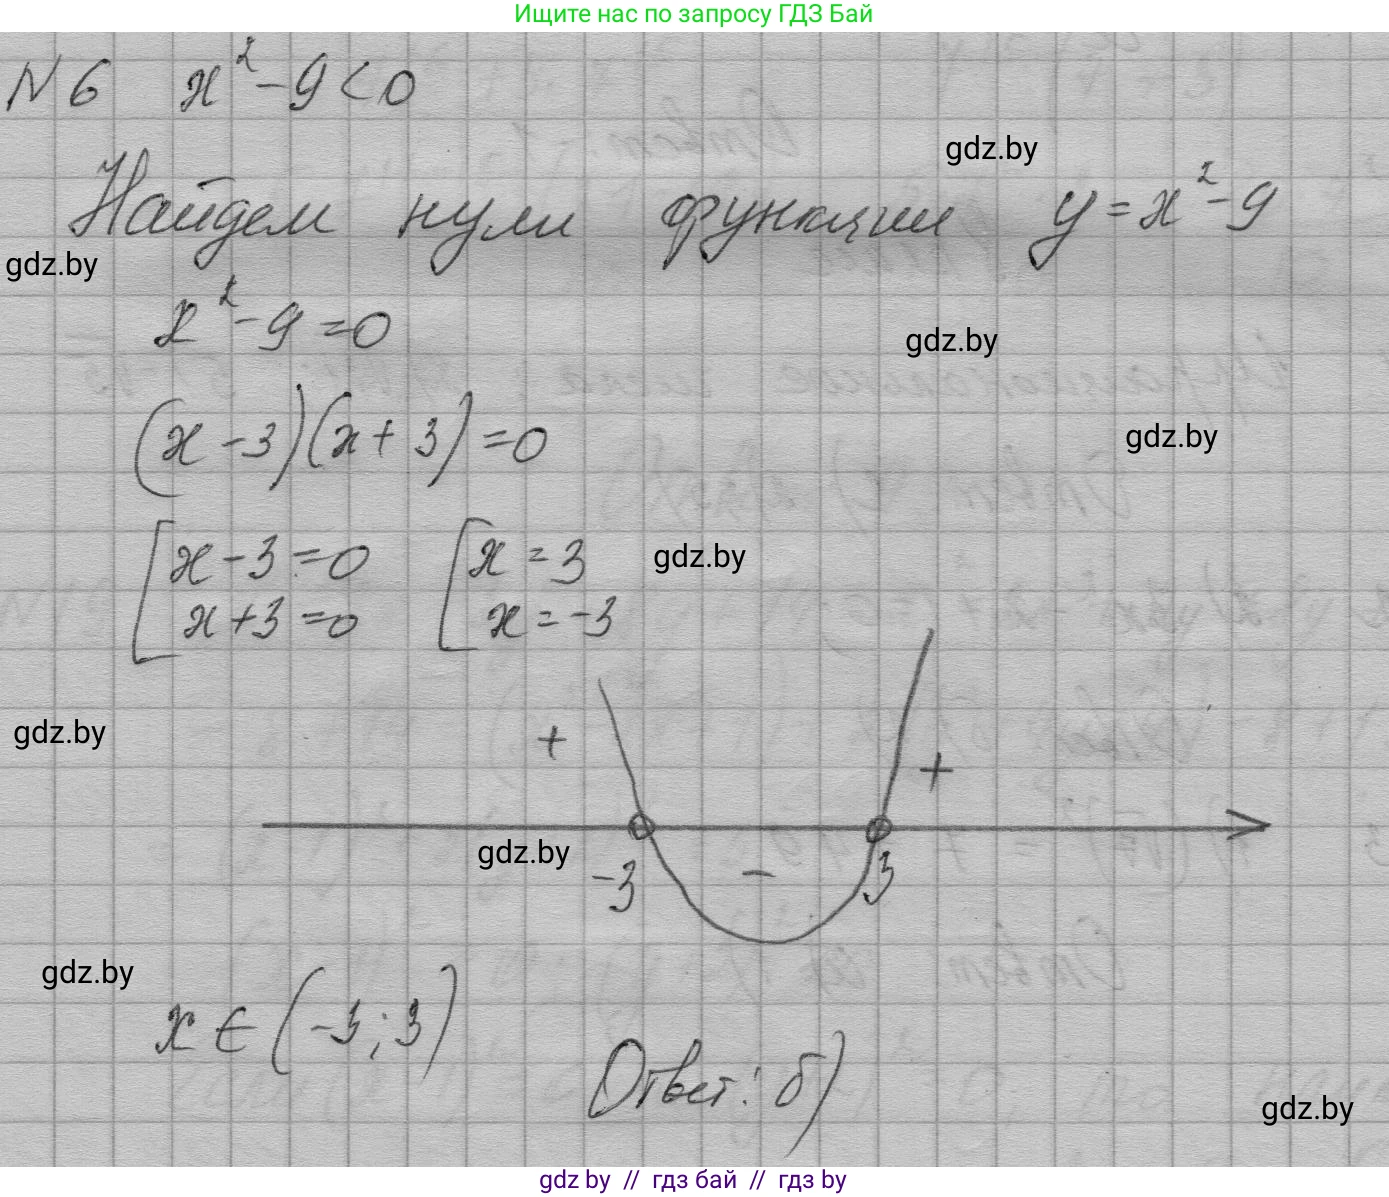 Ищите нас по запросу ГДЗ Бай
N 6 x²-9<0
gdz.by
Найдем нули функции y=x²-9
gdz.by
x²-9=0
gdz.by
(x-3)(x+3)=0
gdz.by
x-3=0 x=3
gdz.by
x+3=0 x=-3
gdz.by
+ +
gdz.by
-3 - 3
gdz.by
x∈(-3;3)
Ответ: б)
gdz.by
gdz.by // гдз бай // гдз by